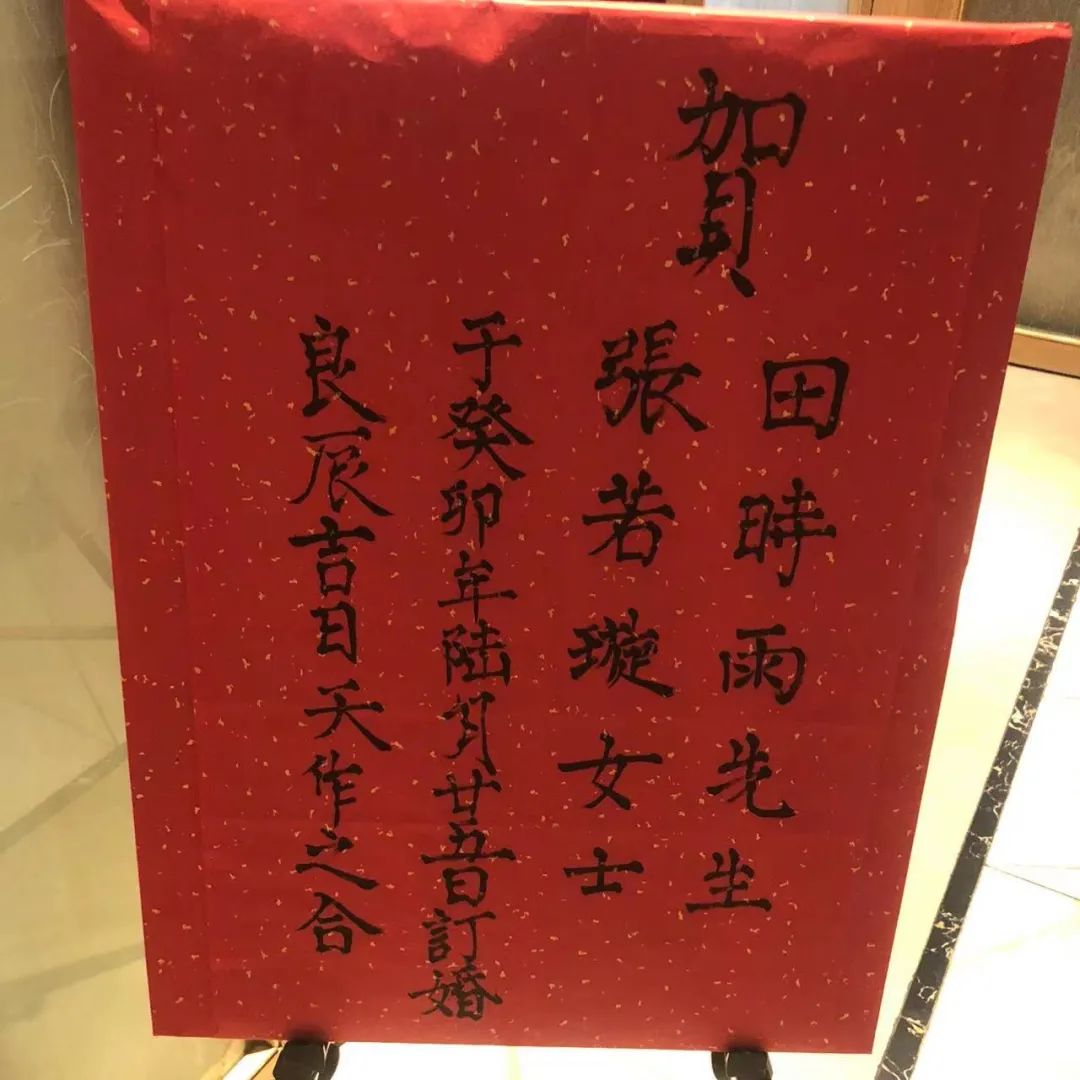 賀
田時雨先生
張若璇女士
于癸卯年陆月廿五日訂婚
良辰吉日天作之合